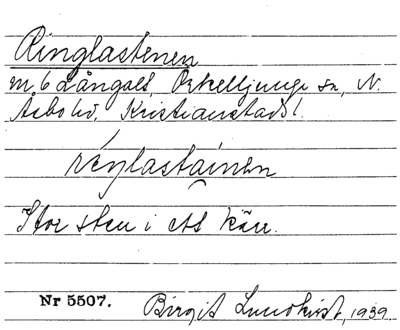 Ringlastenen
m. 6 Långalt, Örkelljunga sn, N.
Åsbo hd, Kristianstads l.
Stor sten i ett kärr.
Nr 5507.
Birgit Lundkvist, 1939.